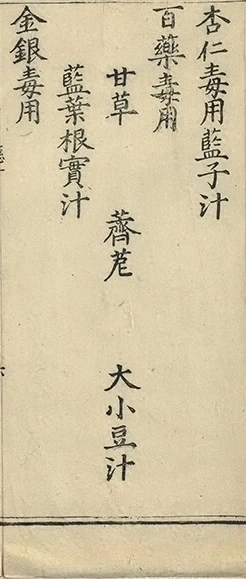 杏仁毒用藍子汁
百藥毒用
甘草　薺苨　大小豆汁
藍葉根實汁
金銀毒用